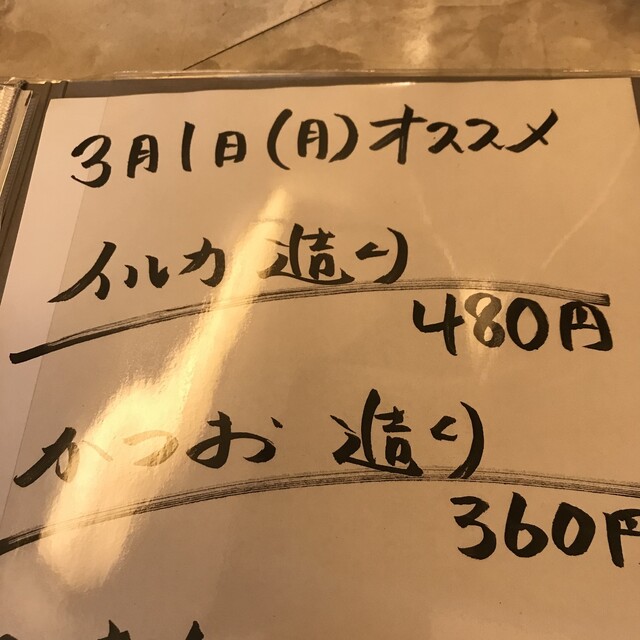 3月1日(月)オススメ
イルカ 造り
480円
かつお 造り
360円